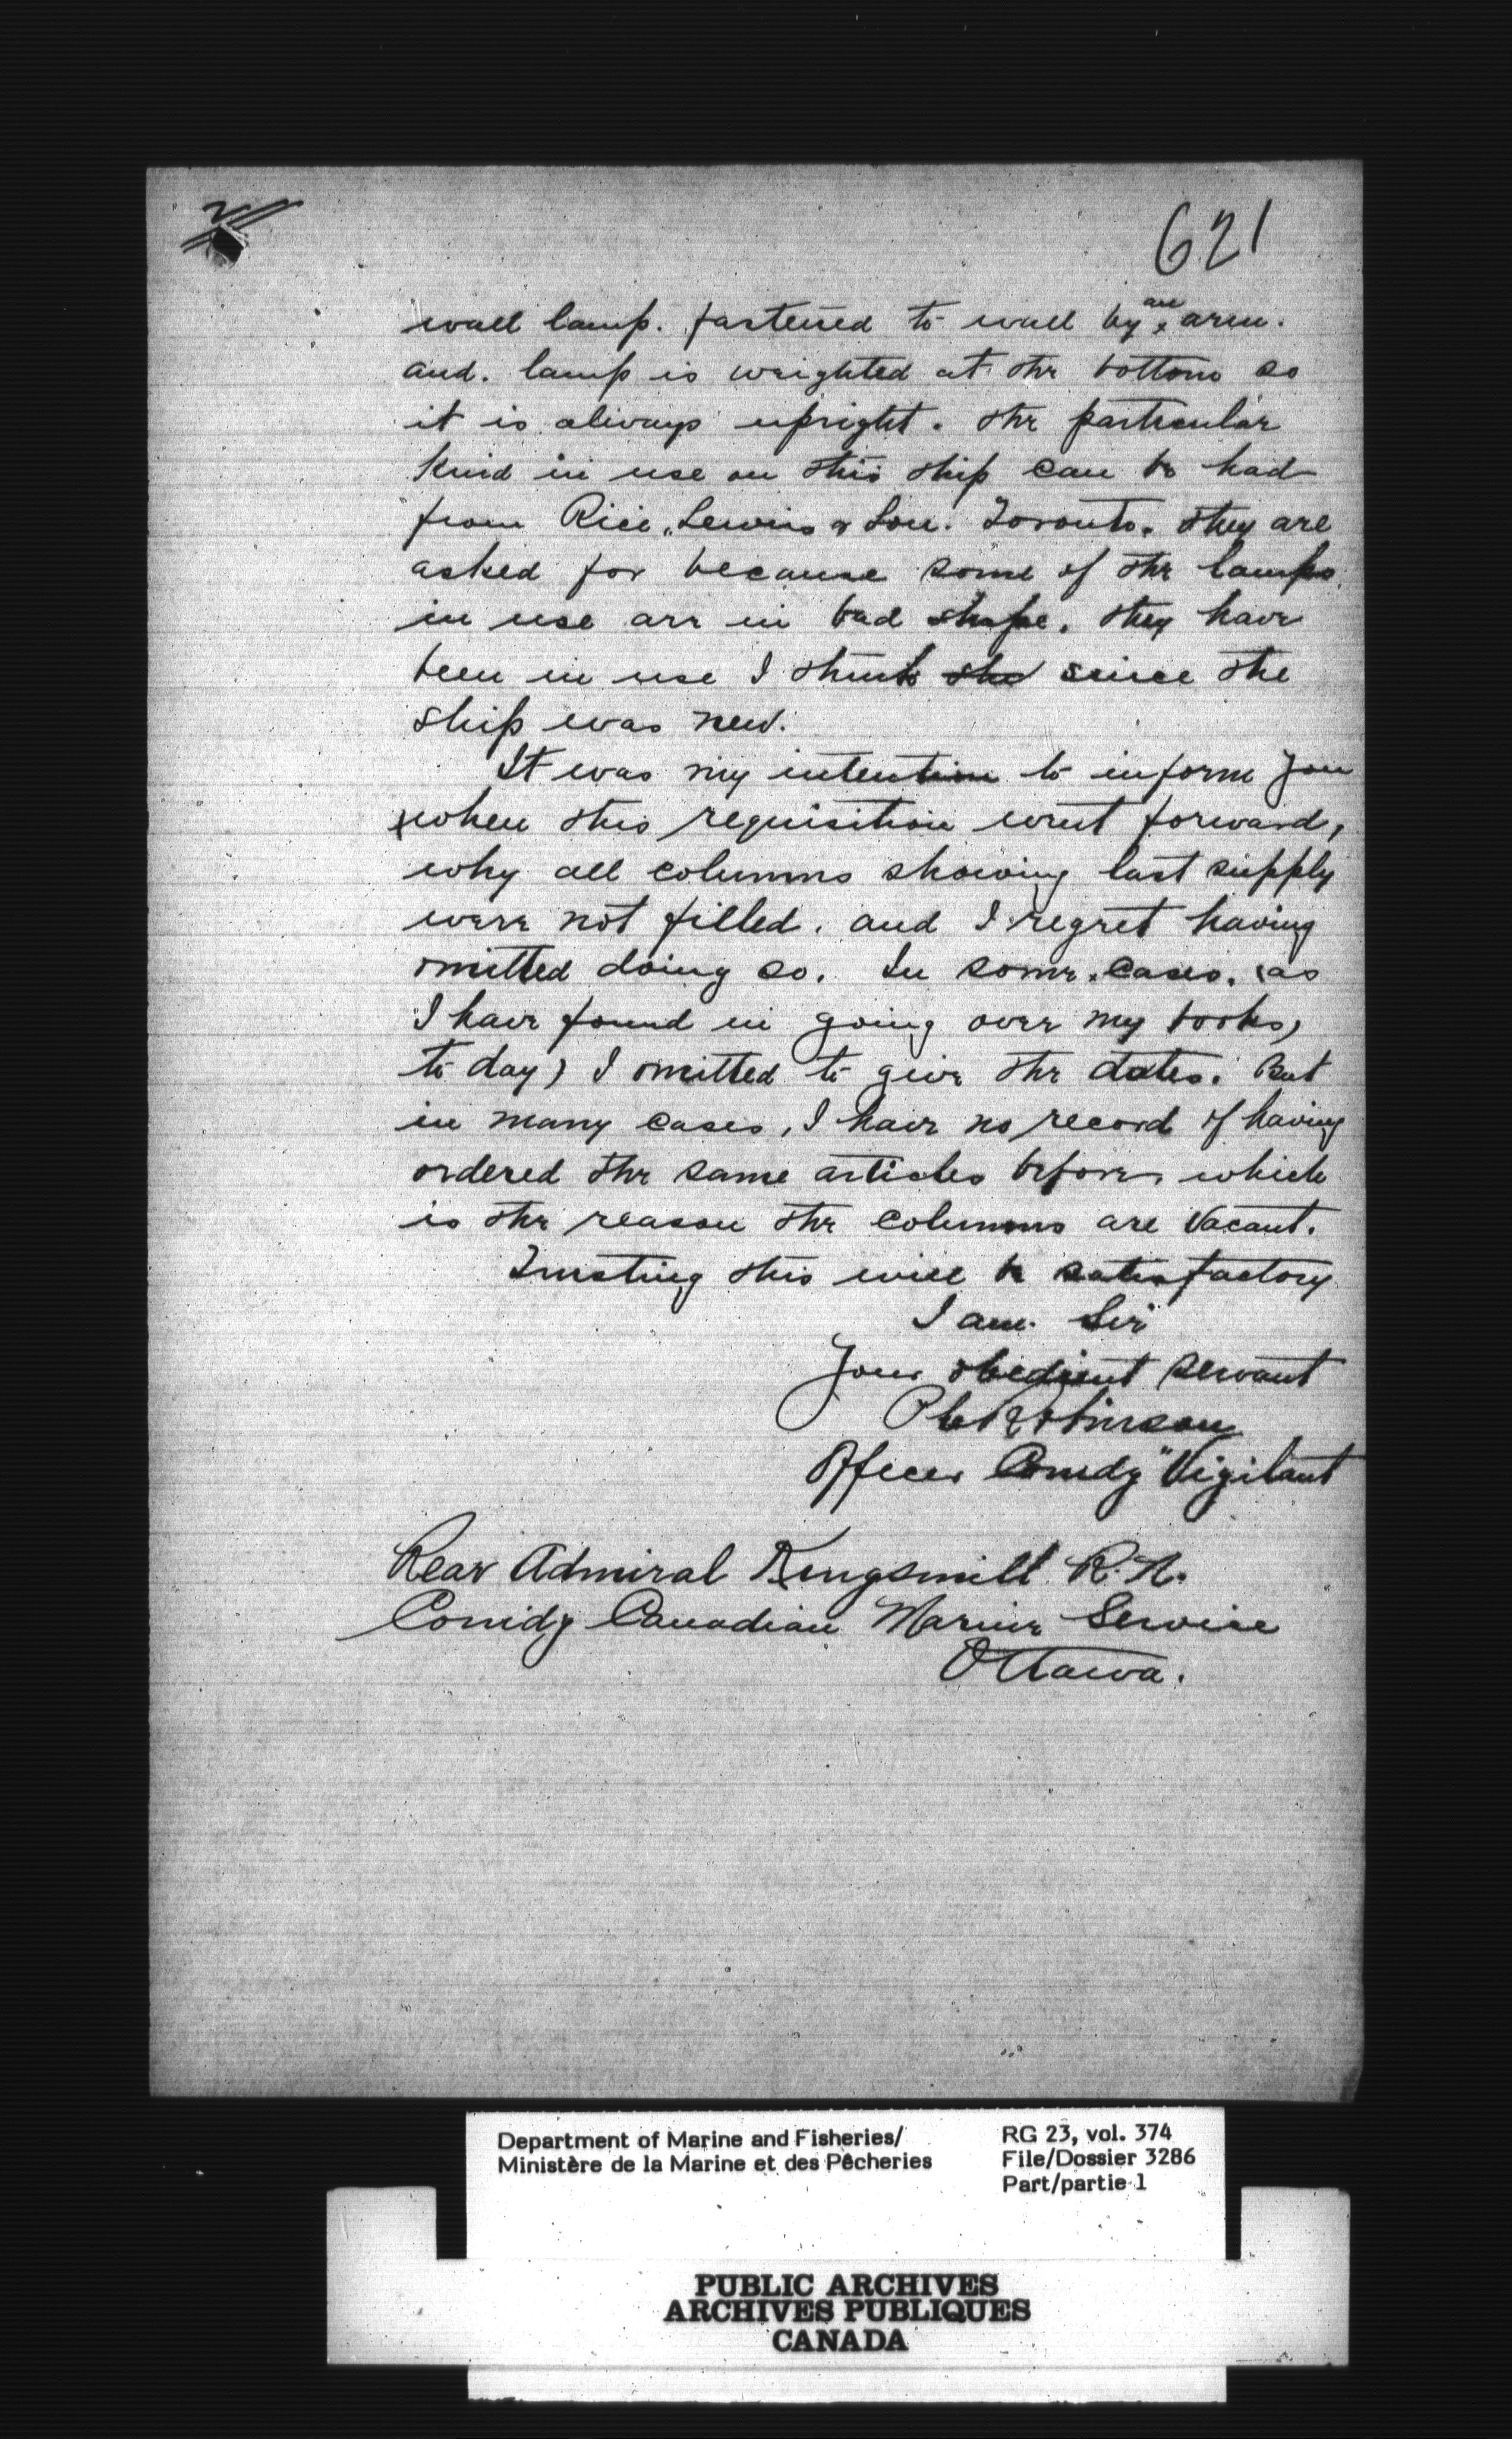 2
621
wall lamp. fastened to wall by an arm.
and. lamp is weighted at the bottom so
it is always upright. The particular
kind in use on this ship can be had
from Rice, Lewis & Son. Toronto. They are
asked for because some of the lamps
in use are in bad shape. They have
been in use I think she since the
ship was new.
It was my intention to inform you
when this requisition went forward,
why all columns showing last supply
were not filled. and I regret having
omitted doing so. In some cases. (as
I have found in going over my books,
to day) I omitted to give the dates. But
in many cases, I have no record of having
ordered the same articles before, which
is the reason the columns are vacant.
Trusting this will be satisfactory
I am. Sir
Your obedient servant
Robinson
Officer Comdg "Vigilant
Rear Admiral Kingsmill R.N.
Comdg Canadian Marine Service
Ottawa.
Department of Marine and Fisheries/
Ministère de la Marine et des Pêcheries
RG 23, vol. 374
File/Dossier 3286
Part/partie 1
PUBLIC ARCHIVES
ARCHIVES PUBLIQUES
CANADA